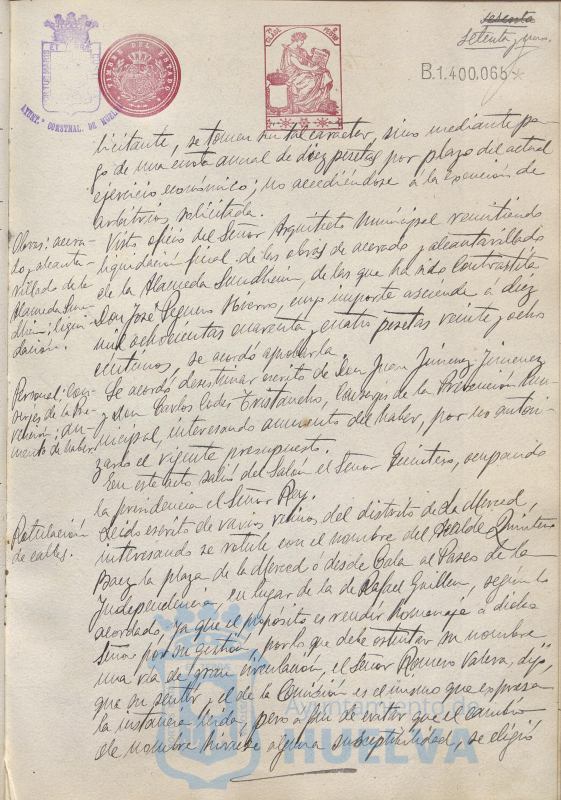 sesenta
setenta y uno.
B.1.400,066
TIMBRE DEL ESTADO
AYUNT.º CONSTNAL. DE HUELVA
licitante, se toman en tal caracter, sino mediante pa-
go de una cuota anual de diez pesetas por plazo del actual
ejercicio económico; no accediéndose á la exención de
arbitrios solicitada.
Obras: acera-
do y alcanta-
rillado de la
Alameda Sun-
dheim; liqui-
dación.
Visto oficio del Señor Arquitecto Municipal remitiendo
liquidación final de las obras de acerado y alcantarillado
de la Alameda Sundheim, de las que ha sido Contratista
Don José Peguero Moreno, cuyo importe asciende á diez
mil ochocientas cuarenta y cuatro pesetas veinte y ocho
céntimos, se acordó aprobarla.
Personal: Con-
serjes de la Pre-
vención; au-
mento de haber.
Se acordó desestimar escrito de Don Juan Jiménez Jimenez
y Don Carlos Codes Tristancho, Conserjes de la Prevención Mu-
nicipal, interesando aumento del haber, por no autori-
zarlo el vigente presupuesto.
En este acto salió del Salón el Señor Quintero, ocupando
la presidencia el Señor Rey.
Rotulación
de calles.
Leído escrito de varios vecinos del distrito de La Merced,
interesando se rotule con el nombre del Alcalde Quintero
Baez la plaza de la Merced ó desde Cala al Paseo de la
Independencia, en lugar de la de Rafael Guillen, según lo
acordado, ya que el propósito es rendir homenaje á dicho
Señor por su gestión, por lo que debe ostentar su nombre
una vía de gran circulación, el Señor Romero Valera, dijo,
que su sentir y el de la Comisión es el mismo que expresa
la instancia leída, pero á fin de evitar que el cambio
de nombre hiriese alguna susceptibilidad, se eligió
Ayuntamiento de
HUELVA